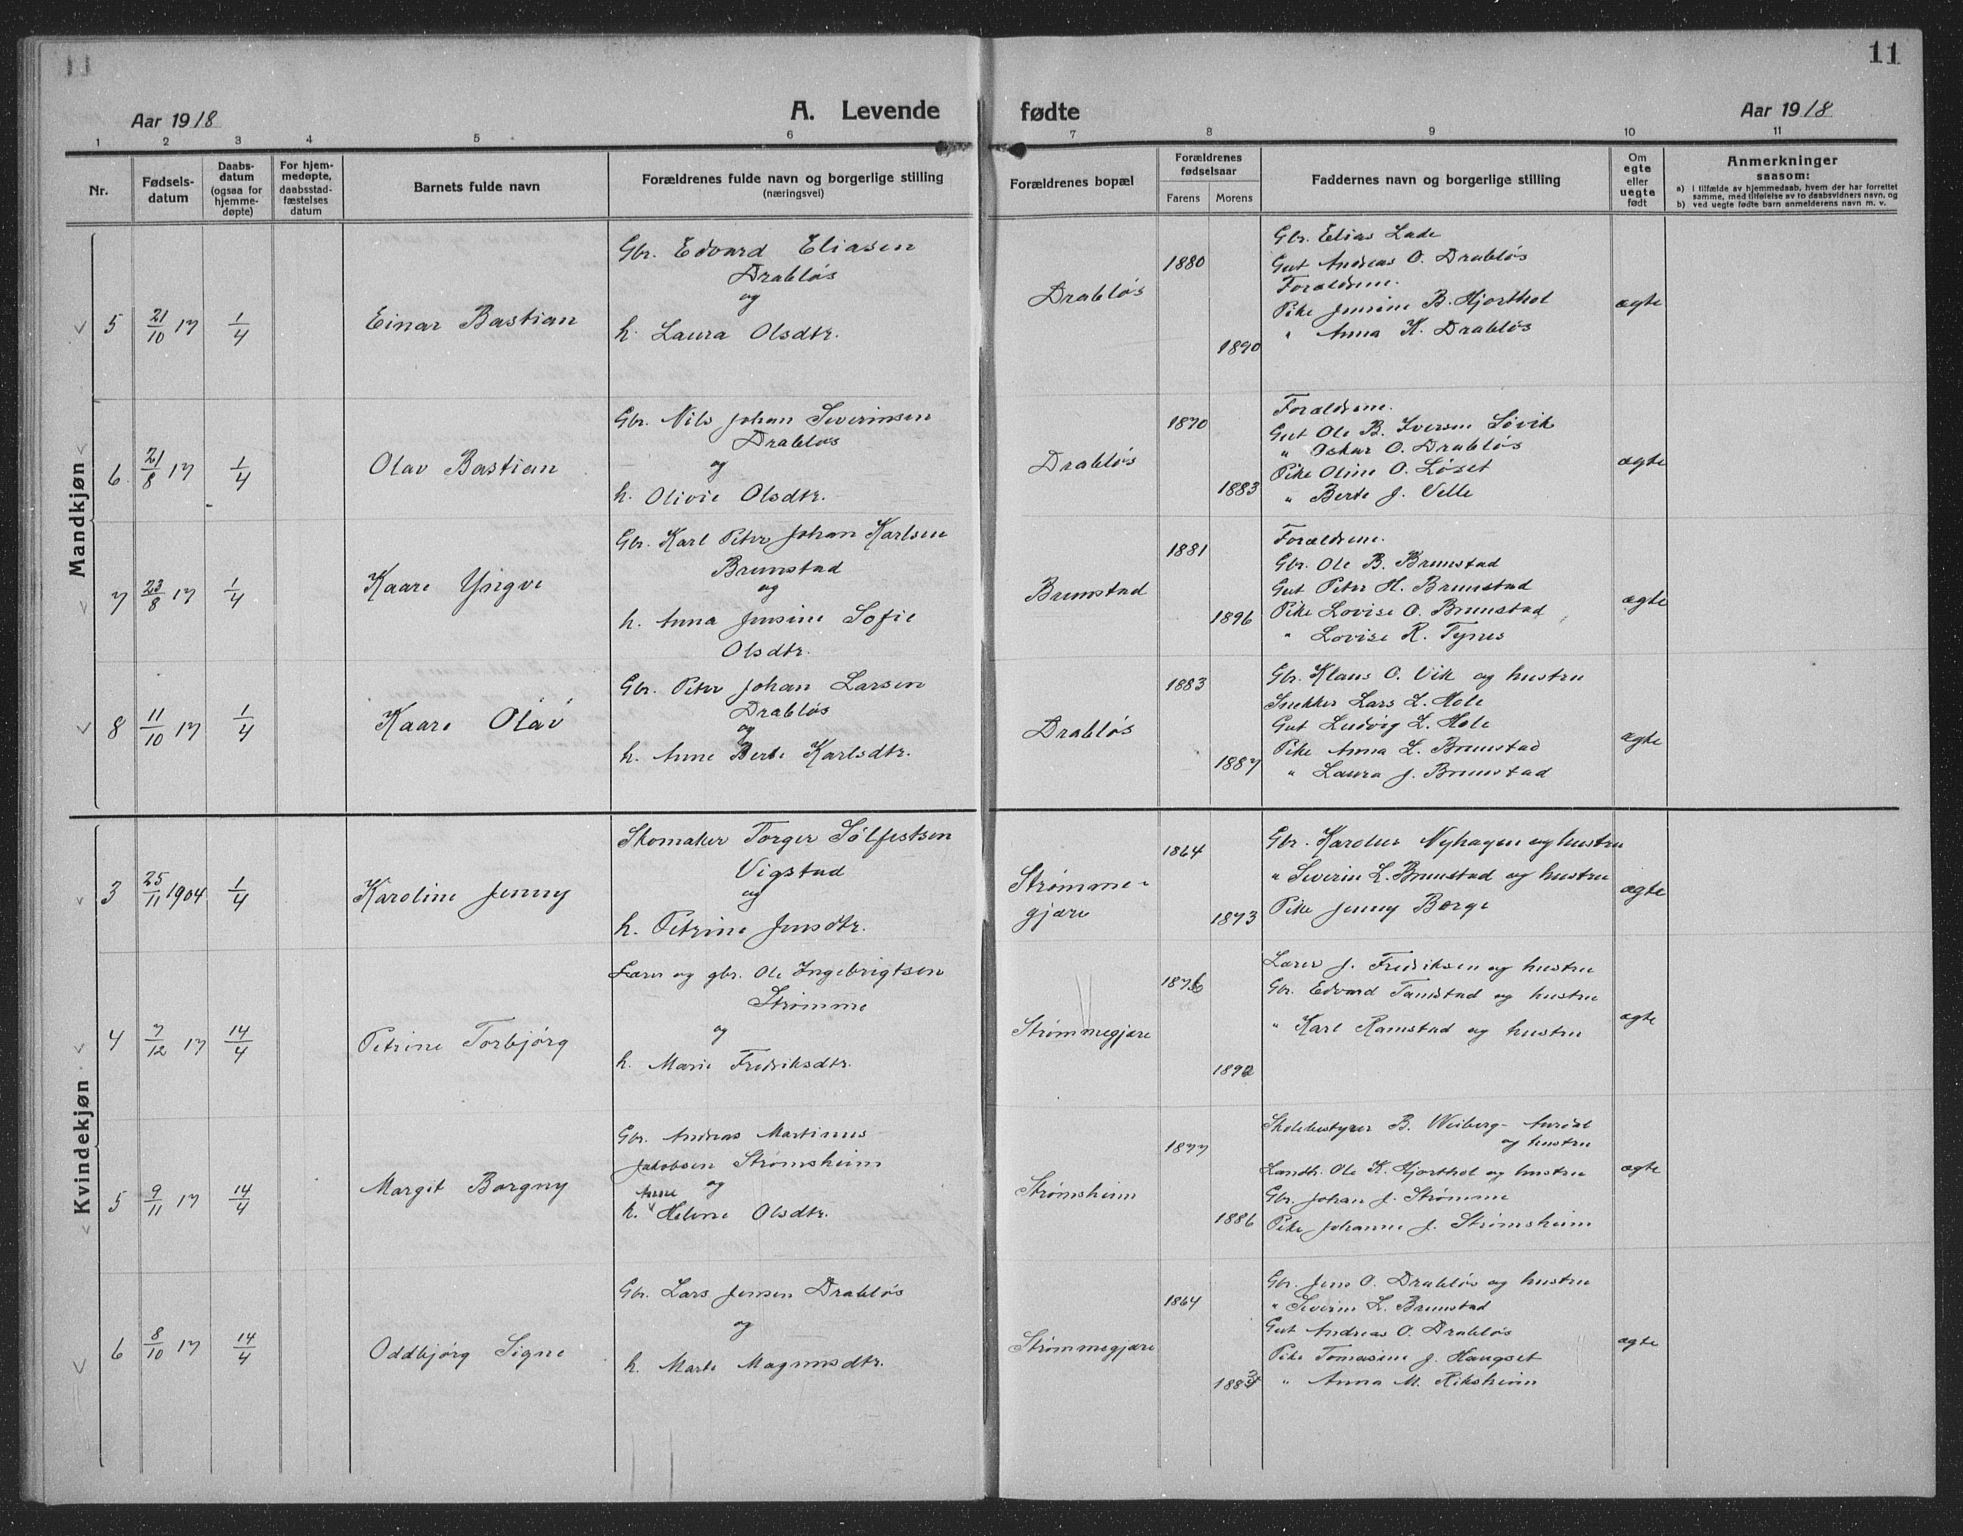 11
Aar 1918
A. Levende fødte
Aar 1918
1 2 3 4 5 6 7 8 9 10 11
Nr.
Fødsels-
datum
Daabs-
datum
(ogsaa for
hjemme-
døpte)
For hjem-
medøpte,
daabsstad-
fæstelses
datum
Barnets fulde navn
Forældrenes fulde navn og borgerlige stilling
(næringsvei)
Forældrenes bopæl
Forældrenes
fødselsaar
Farens Morens
Faddernes navn og borgerlige stilling
Om
egte
eller
uegte
født
Anmerkninger
saasom:
a) i tilfælde av hjemmedaab, hvem der har forrettet
samme, med tilføielse av to daabsvidners navn, og
b) ved uegte fødte barn anmelderens navn m. v.
Mandkjøn
5 21/10 17 1/4 Einar Bastian
Gbr. Edvard Eliasen
Drabløs
og
h. Laura Olsdtr.
Drabløs
1880
1890
Gbr. Elias Lade
Gut Andreas O. Drabløs
Forældrene.
Pike Jensine B. Hjorthol
" Anna K. Drabløs
ægte
6 21/8 17 1/4 Olav Bastian
Gbr. Nils Johan Severinsen
Drabløs
og
h. Olivie Olsdtr.
Drabløs
1870
1883
Forældrene.
Gut Ole B. Iversen Søvik
" Oskar O. Drabløs
Pike Oline O. Løset
" Berte J. Velle
ægte
7 23/8 17 1/4 Kaare Yngve
Gbr. Karl Peter Johan Karlsen
Brunstad
og
h. Anna Jensine Sofie
Olsdtr.
Brunstad
1881
1896
Forældrene.
Gbr. Ole B. Brunstad
Gut Peter H. Brunstad
Pike Lovise O. Brunstad
" Lovise R. Tynes
ægte
8 11/10 17 1/4 Kaare Olav
Gbr. Peter Johan Larsen
Drabløs
og
h. Anne Berte Karlsdtr.
Drabløs
1883
1887
Gbr. Klaus O. Vik og hustru
Snekker Lars L. Hole
Gut Ludvig L. Hole
Pike Anna L. Brunstad
" Laura J. Brunstad
ægte
Kvindekjøn
3 25/11 1904 1/4 Karoline Jenny
Skomaker Torger Sølfestsen
Vigstad
og
h. Petrine Jensdtr.
Strømme-
gjære
1864
1873
Gbr. Karolus Nyhagen og hustru
" Severin L. Brunstad og hustru
Pike Jenny Borge
ægte
4 7/12 17 14/4 Petrine Torbjørg
Lærer og gbr. Ole Ingebrigtsen
Strømme
og
h. Marie Fredriksdtr.
Strømmegjære
1876
1892
Lærer J. Fredriksen og hustru
Gbr. Edvard Tandstad og hustru
" Karl Ramstad og hustru
ægte
5 9/11 17 14/4 Margit Borgny
Gbr. Andreas Martinus
Jakobsen Strømsheim
og
Anne
h. Helene Olsdtr.
Strømsheim
1877
1886
Skolebestyrer B. Weiberg-Aurdal
og hustru
Landh. Ole K. Hjorthol og hustru
Gbr. Johan J. Strømme
Pike Johanne J. Strømsheim
ægte
6 8/10 17 14/4 Oddbjørg Signe
Gbr. Lars Jensen Drabløs
og
h. Marte Magnusdtr.
Strømmegjære
1864
Gbr. Jens O. Drabløs og hustru
" Severin L. Brunstad
Gut Andreas O. Drabløs
Pike Tomasine J. Haugset
" Anna M. Riksheim
ægte